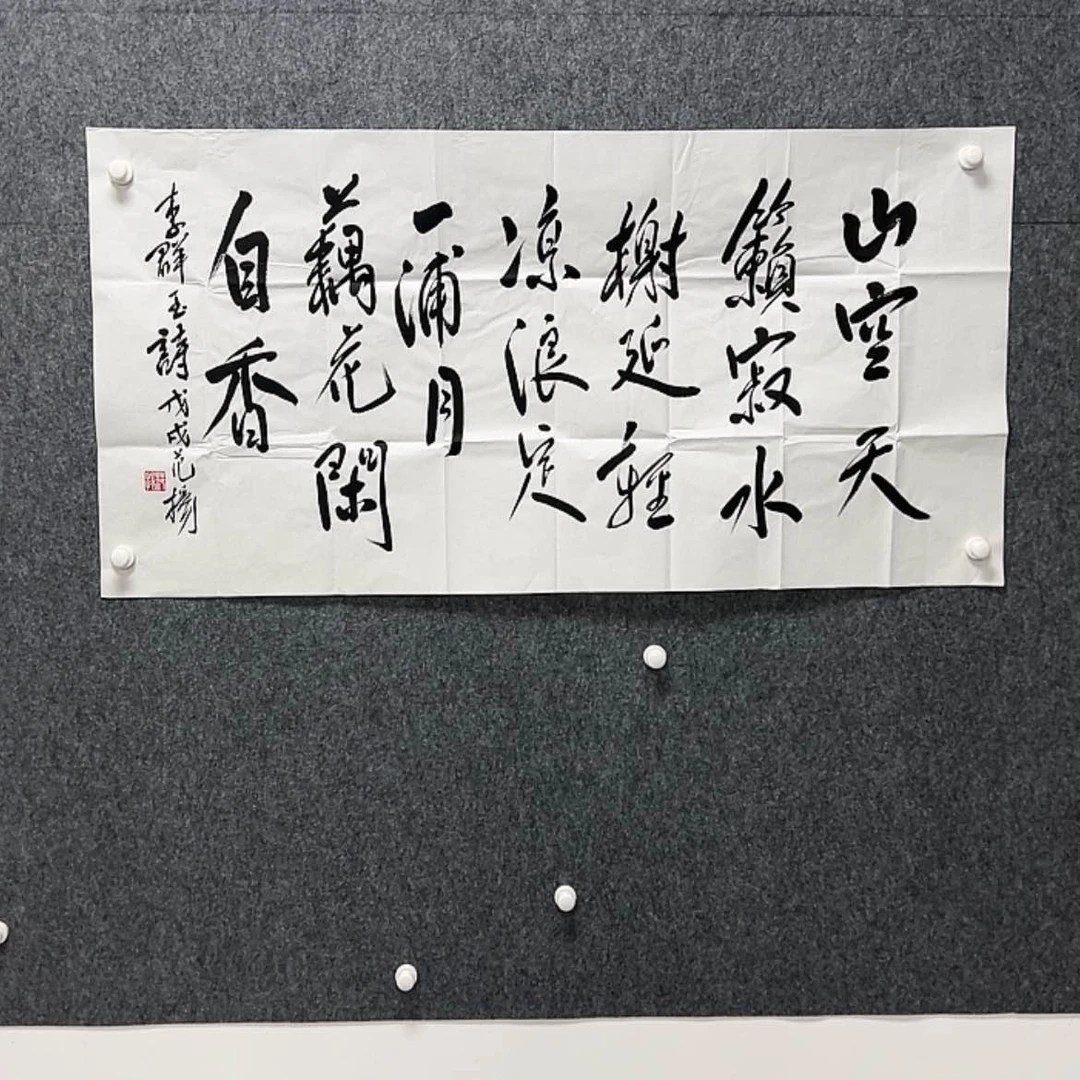 山空天
籟寂水
榭延輕
涼浪定
一浦月
藕花閑
自香
李群玉詩戊戌范橋